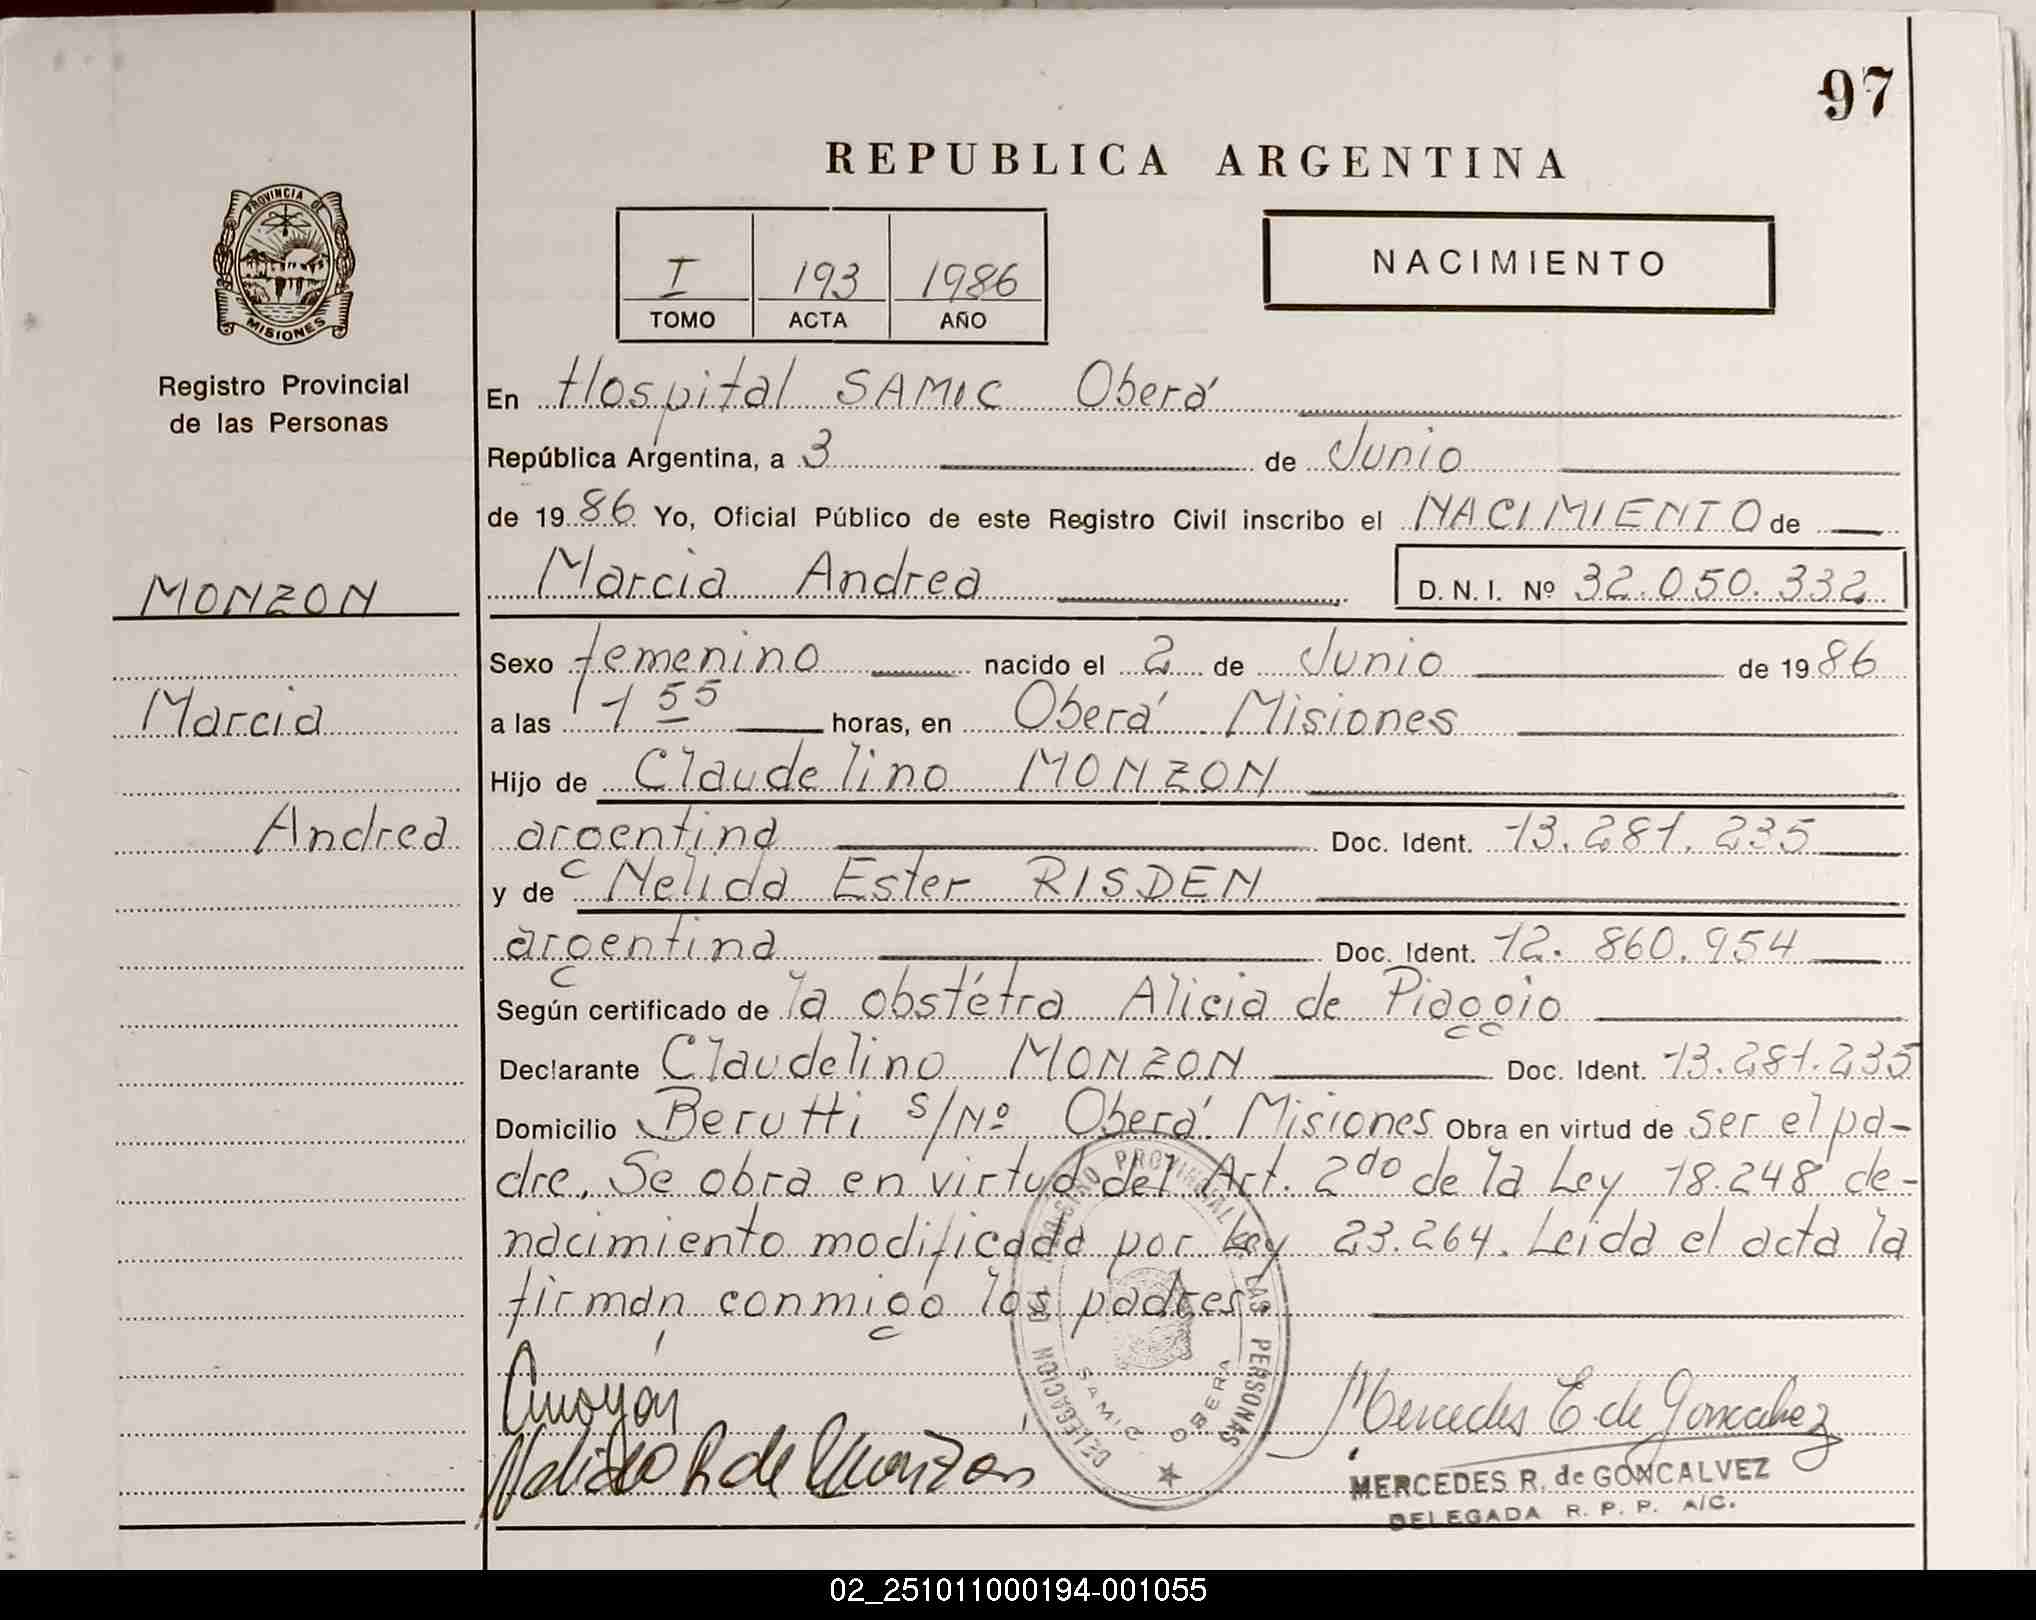 97
REPUBLICA ARGENTINA
PROVINCIA DE
MISIONES
Registro Provincial
de las Personas
I 193 1986
TOMO ACTA AÑO
NACIMIENTO
En Hospital SAMIC Oberá
República Argentina, a 3 de Junio
de 1986 Yo, Oficial Público de este Registro Civil inscribo el NACIMIENTO de
MONZON
Marcia Andrea D.N.I. Nº 32.050.332
Sexo femenino nacido el 2 de Junio de 1986
Marcia
a las 1 55 horas, en Oberá Misiones
Hijo de Claudelino MONZON
Andrea
argentina Doc. Ident. 13.281.235
y de Nelida Ester RISDEN
argentina Doc. Ident. 12.860.954
Según certificado de la obstétra Alicia de Piaggio
Declarante Claudelino MONZON Doc. Ident. 13.281.235
Domicilio Berutti S/Nº Oberá Misiones Obra en virtud de ser el pa-
dre. Se obra en virtud del Art. 2do de la Ley 18.248 de-
nacimiento modificada por Ley 23.264. Leida el acta la
firman conmigo los padres.
DELEGACION DEL REGISTRO PROVINCIAL DE LAS PERSONAS
SAMIC OBERA
Nelida R de Monzon
Mercedes E. de Goncalvez
MERCEDES R. de GONCALVEZ
DELEGADA R. P. P. A/C.
02_251011000194-001055